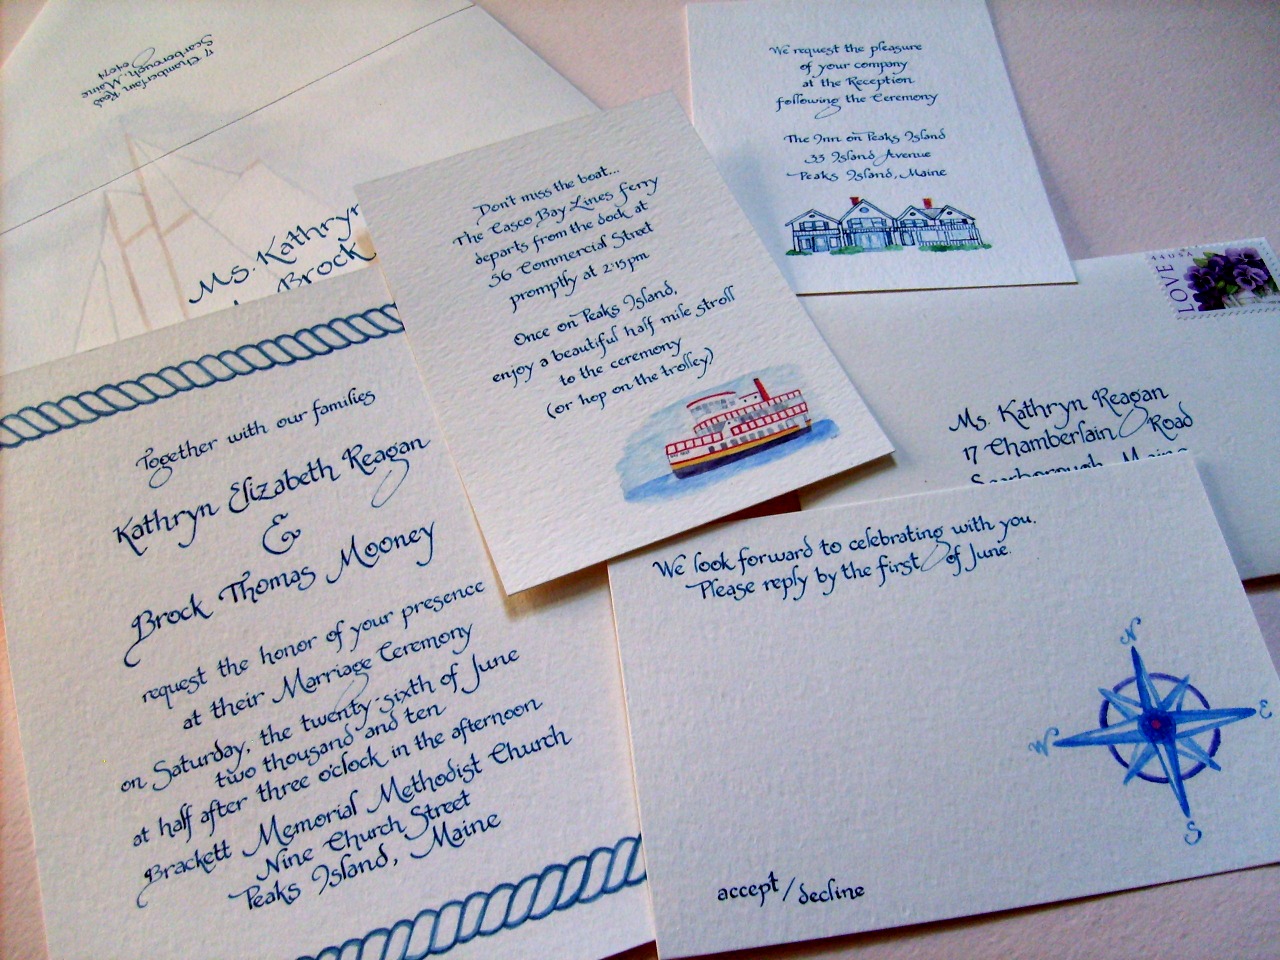 17 Chamberlain Road
Scarborough, Maine
04074
Ms. Kathryn
Brock
Together with our families
Kathryn Elizabeth Reagan
&
Brock Thomas Mooney
request the honor of your presence
at their Marriage Ceremony
on Saturday, the twenty-sixth of June
two thousand and ten
at half after three o'clock in the afternoon
Brackett Memorial Methodist Church
Nine Church Street
Peaks Island, Maine
Don't miss the boat...
The Casco Bay Lines Ferry
departs from the dock at
56 Commercial Street
promptly at 2:15pm
Once on Peaks Island,
enjoy a beautiful half mile stroll
to the ceremony
(or hop on the trolley)
We request the pleasure
of your company
at the Reception
following the Ceremony
The Inn on Peaks Island
33 Island Avenue
Peaks Island, Maine
44 USA
LOVE
Ms. Kathryn Reagan
17 Chamberlain Road
Scarborough, Maine
We look forward to celebrating with you.
Please reply by the first of June.
N
W
E
S
accept/decline